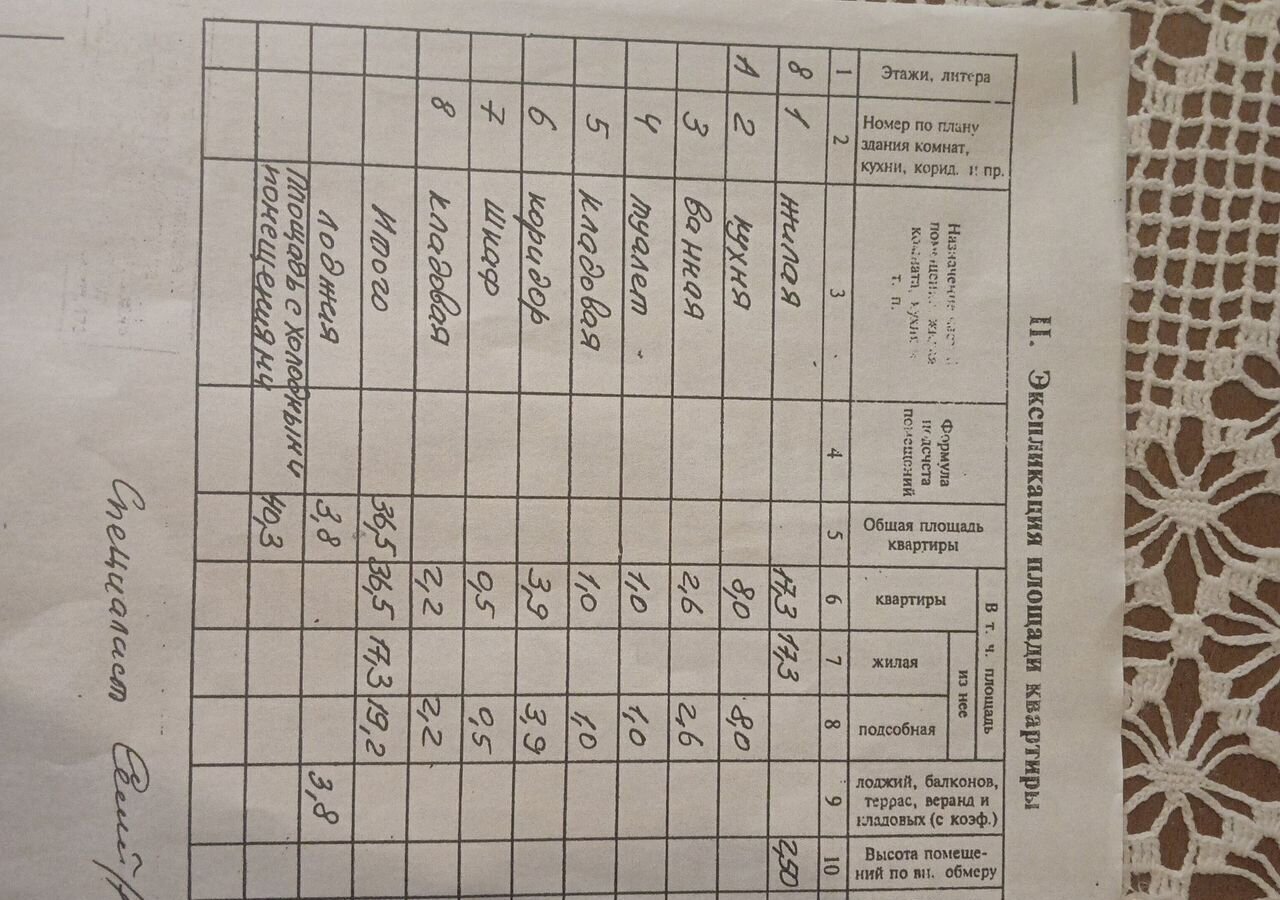 II. Экспликация площади квартиры
Этажи, литера
Номер по плану
здания комнат,
кухни, корид. и пр.
Назначение
комната, кухня и
т. п.
Формула
подсчета
помещений
Общая площадь
квартиры
В т. ч. площадь
квартиры
из нее
жилая
подсобная
лоджий, балконов,
террас, веранд и
кладовых (с коэф.)
Высота помеще-
ний по вн. обмеру
1 2 3 4 5 6 7 8 9 10
8 1 жилая 17,3 17,3 2,50
А 2 кухня 8,0 8,0
3 ванная 2,6 2,6
4 туалет 1,0 1,0
5 кладовая 1,0 1,0
6 коридор 3,9 3,9
7 шкаф 0,5 0,5
8 кладовая 2,2 2,2
Итого 36,5 36,5 17,3 19,2
лоджия 3,8 3,8
Площадь с холодными
помещениями 40,3
Специалист